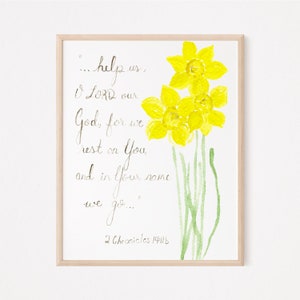 "...help us,
O LORD our
God, for we
rest on You
and in Your name
we go..."
2 Chronicles 14:11b